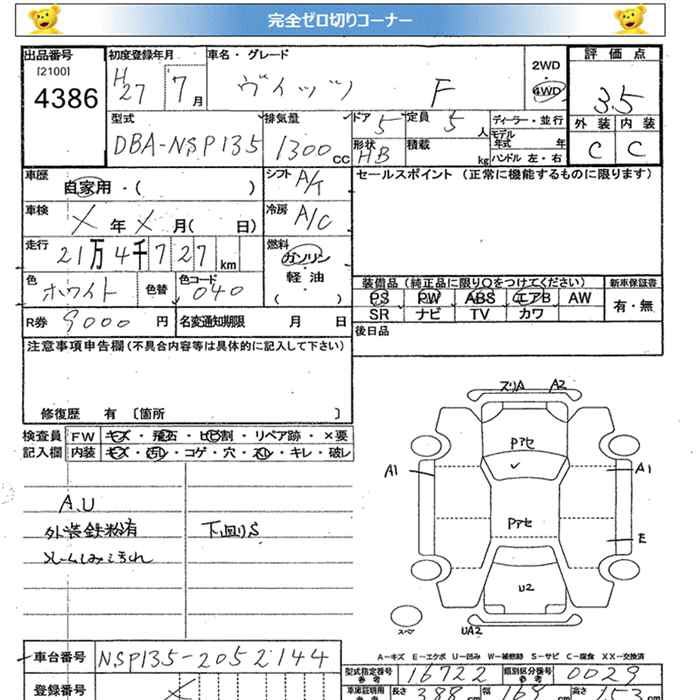 完全ゼロ切りコーナー
出品番号 初度登録年月 車名・グレード 2WD 評価点
[2100] H27 7月 ヴィッツ F 4WD 3.5
4386
型式 排気量 ドア 5 定員 5人 ディーラー・並行 外装 内装
DBA-NSP135 1300cc モデル年式 年 C C
形状 HB 積載 kg ハンドル 左・右
車歴 自家用・( ) シフト A/T セールスポイント (正常に機能するものに限ります)
車検 X年X月( 日) 冷房 A/C
走行 21万4千727km 燃料 ガソリン
軽油
( )
色 ホワイト 色替 色コード 040 装備品 (純正品に限り○をつけてください) 新車保証書
PS PW ABS エアB AW 有・無
SR ナビ TV カワ
R券 9000円 名変通知期限 月 日 後日品
注意事項申告欄(不具合内容等は具体的に記入して下さい)
修復歴 有 〔箇所 〕
検査員 FW キズ・飛石・ヒビ割・リペア跡・×要
記入欄 内装 キズ・汚れ・コゲ・穴・スレ・キレ・破レ
A.U
外装鉄粉有 下回りS
スリA A2
Pアセ
A1 A1
Pアセ
E
U2
スペ UA2
A-キズ E-エクボ U-凹み W-補修跡 S-サビ C-腐食 XX-交換済
車台番号 NSP135-2052144
型式指定番号 参考 16722 類別区分番号 参考 0029
登録番号 X 車庫証明用 参考 長さ 388cm 幅 169cm 高さ 153cm